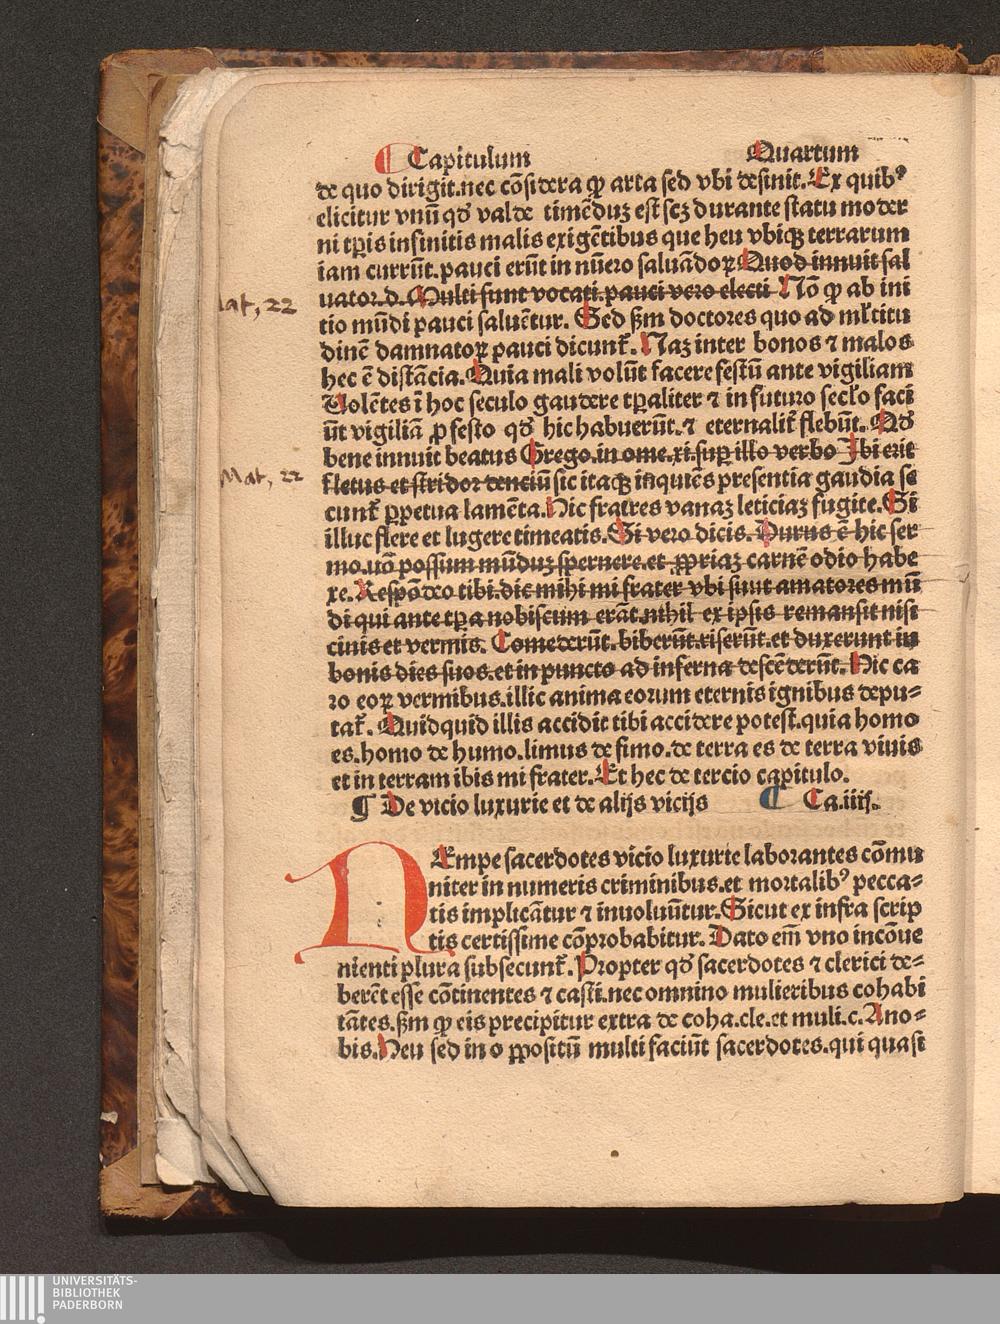 ¶ Capitulum Quartum
de quo dirigit.nec cōsidera ꝙ arta sed vbi desinit.Ex quibꝰ
elicitur vnū qđ valde timēduz est scz durante statu moder
ni tꝑis infinitis malis exigētibus que heu vbiqꝫ terrarum
iam currūt.pauci erūt in nūero saluādoꝝ Quod innuit sal
uator.d.Multi sunt vocati.pauci vero electi Nō ꝙ ab ini
Mat, 22
tio mūdi pauci saluētur. Sed ẜm doctores quo ad mĺtitu
dinē damnatoꝝ pauci dicunt᷑.Naz inter bonos ⁊ malos
hec ē distācia.Quia mali volūt facere festū ante vigiliam
Volētes ī hoc seculo gaudere tꝑaliter ⁊ in futuro secĺo faci
ūt vigiliā ꝓ festo qđ hic habuerūt.⁊ eternalit᷑ flebūt.Qđ
bene innuit beatus Grego.in ome.xi.suꝑ illo verbo Ibi erit
Mat, 22
fletus et stridor denciū sic itaqꝫ inquiēs presentia gaudia se
cunt᷑ ꝑpetua lamēta.Hic fratres vanaz leticiaz fugite.Si
illuc flere et lugere timeatis.Si vero dicis.Durus ē hic ser
mo.nō possum mūduz spernere.et ꝓpriaz carnē odio habe
re.Respōdeo tibi.dic mihi mi frater vbi sunt amatores mū
di qui ante tꝑa nobiscum erāt.nihil ex ipsis remansit nisi
cinis et vermis. Comederūt.biberūt.riserūt.et duxerunt in
bonis dies suos.et in puncto ad inferna descēderūt.Hic ca
ro eoꝝ vermibus.illic anima eorum eternis ignibus depu⸗
tat᷑.Quidquid illis accidit tibi accidere potest.quia homo
es.homo de humo.limus de fimo.de terra es de terra viuis
et in terram ibis mi frater.Et hec de tercio capitulo.
¶ De vicio luxurie et de alijs vicijs ¶ Ca.iiij.
NEmpe sacerdotes vicio luxurie laborantes cōmu
niter in numeris criminibus.et mortalibꝰ pecca⸗
tis implicātur ⁊ inuoluūtur.Sicut ex infra scrip
tis certissime cōprobabitur.Dato em̄ vno incōue
nienti plura subsecunt᷑.Propter qđ sacerdotes ⁊ clerici de⸗
berēt esse cōtinentes ⁊ casti.nec omnino mulieribus cohabi
tātes.ẜm ꝙ eis precipitur extra de coha.cle.et muli.c.A no⸗
bis.Heu sed in o ꝓpositū multi faciūt sacerdotes.qui quasi
UNIVERSITÄTS-
BIBLIOTHEK
PADERBORN